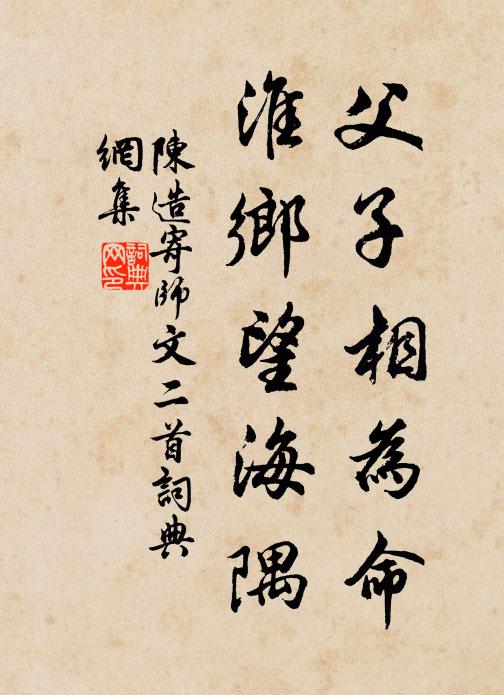 父子相為命
淮鄉望海隅
陳造寄師文二首詞典
網集
詞典网印